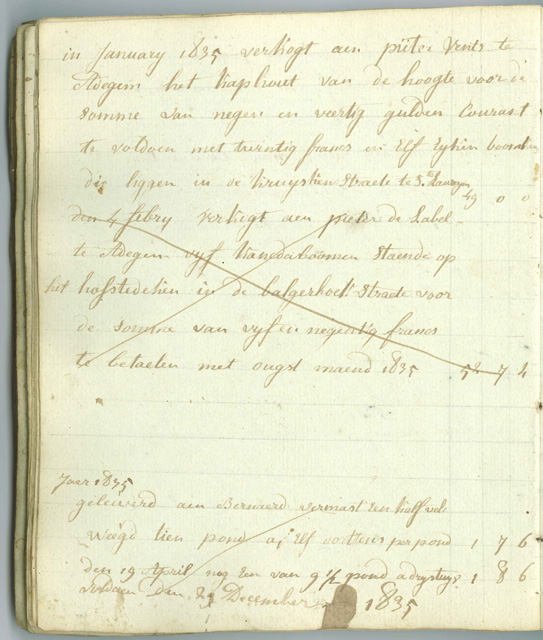 in January 1835 verkogt aen pieter Vents te
Adegem het kaphout van de hoogte voor de
somme van negen en veertig gulden Courant
te voldoen met twintig francs en Elf Eyken boomen
die liggen in de kruysken straete te St. Laureyns
49 0 0
den 4 febry verkogt aen pieter de Label
te Adegem vyf Kanadaboomen staende op
het hofstedeken in de balgerhoek straete voor
de somme van vyf en negentig francs
te betaelen met ougst maend 1835 52 7 4
Jaer 1835
geleverd aen Bernaerd vermast Een half vel
waegd tien pond a Elf per pond 1 7 6
den 19 April nog Een van 9 1/2 pond a 1 8 6
voldaen den 29 December 1835